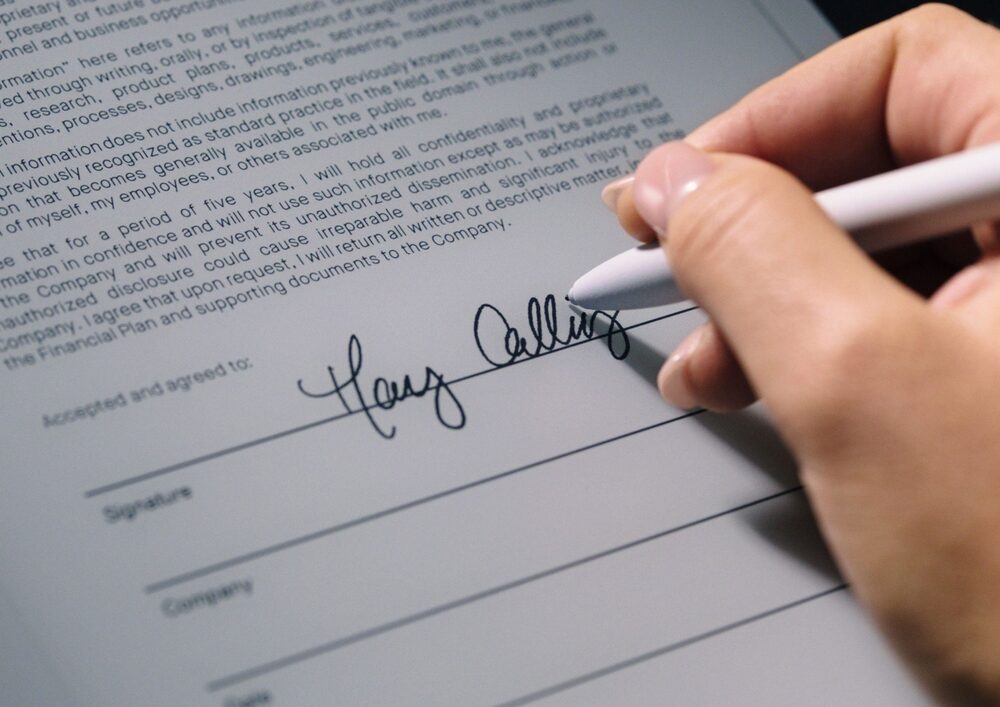 present or future
nnel and business opportuni
ormation" here refers to any information
ed through writing, orally, or by inspection of tangible
s, research, product plans, products, services, customers,
entions, processes, designs, drawings, engineering, marketing, or financ
l information does not include information previously known to me, the general
previously recognized as standard practice in the field. It shall also not include
on that becomes generally available in the public domain through action or
of myself, my employees, or others associated with me.
ee that for a period of five years, I will hold all confidentiality and proprietary
mation in confidence and will not use such information except as may be authorized
the Company and will prevent its unauthorized dissemination. I acknowledge that
nauthorized disclosure could cause irreparable harm and significant injury to
Company. I agree that upon request, I will return all written or descriptive matter
the Financial Plan and supporting documents to the Company.
Accepted and agreed to:
Signature
Company
Date